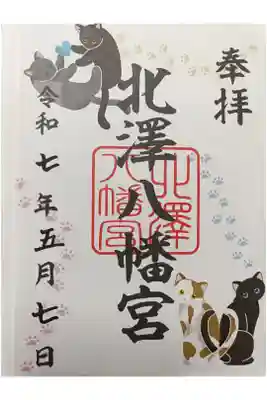 奉拝
北澤八幡宮
北澤
八幡宮
令和七年五月七日